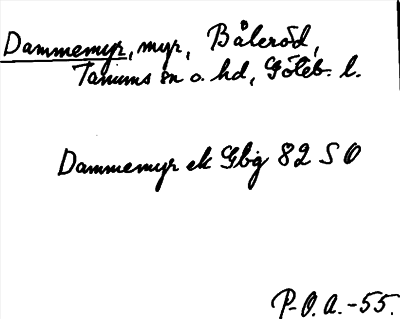 Dammemyr, myr, Båleröd,
Tanums sn o. hd, Göteb. l.
Dammemyr ek Gbg 82 S O
P-O.A.-55.